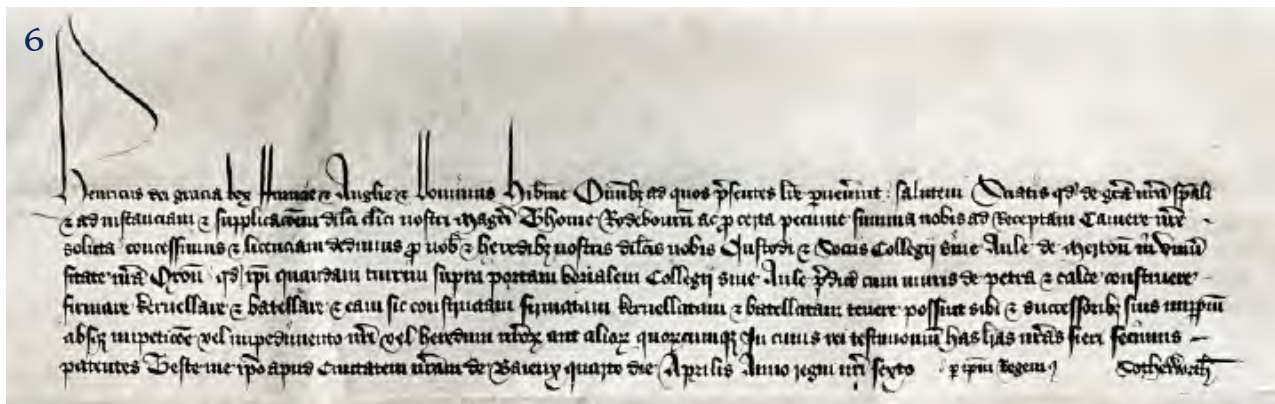 6
Henricus dei gracia Rex Francie & Anglie & Dominus Hibernie Omnibz ad quos p̄sentes lr̄e puen̄int salutem Sciatis qd̄ de gr̄a nr̄a sp̄ali
& ad instanciam & supplicac̄oem dilc̄i clici nostri Magr̄i Thome Rodebourn̄ ac p certa pecunie summa nobis ad Receptam Camere nr̄e
soluta concessimus & licenciam dedimus p nob̄ & heredibz nostris dilc̄is nobis Custodi & Sociis Collegij siue Aule de Merton̄ in Vniu̾
sitate nr̄a Oxon̄ qd̄ ip̄i quandam turrim supra portam borialem Collegij siue Aule p̄dic̄e cum muris de petra & calce construere
firmare kernellare & batellare & eam sic constructam firmatam kernellatam & batellatam tenere possint sibi & successoribz suis imp̄p̄m
absqz impetic̄oe vel impedimento nr̄i vel heredum nr̄oꝝ aut alioꝝ quoꝝcumqz In cuius rei testimonium has lr̄as nr̄as fieri fecimus
patentes Teste me ip̄o apud Ciuitatem nr̄am de Baieux quarto die Aprilis Anno regni nr̄i sexto p ip̄m Regem Sotheworth